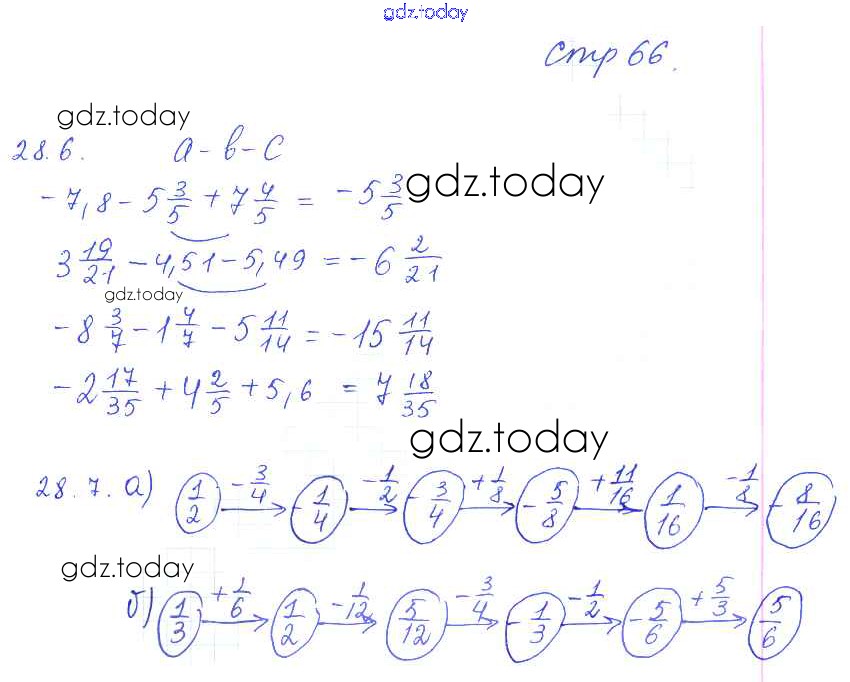 gdz.today
стр 66.
gdz.today
28.6. a - b - c
-7,8 - 5 3/5 + 7 4/5 = -5 3/5
gdz.today
3 19/21 - 4,51 - 5,49 = -6 2/21
gdz.today
-8 3/7 - 1 4/7 - 5 11/14 = -15 11/14
-2 17/35 + 4 2/5 + 5,6 = 7 18/35
gdz.today
28.7. а) 1/2 -3/4 → -1/4 -1/2 → -3/4 +1/8 → -5/8 +11/16 → 1/16 -1/8 → -8/16
gdz.today
б) 1/3 +1/6 → 1/2 -1/12 → 5/12 -3/4 → -1/3 -1/2 → -5/6 +5/3 → 5/6